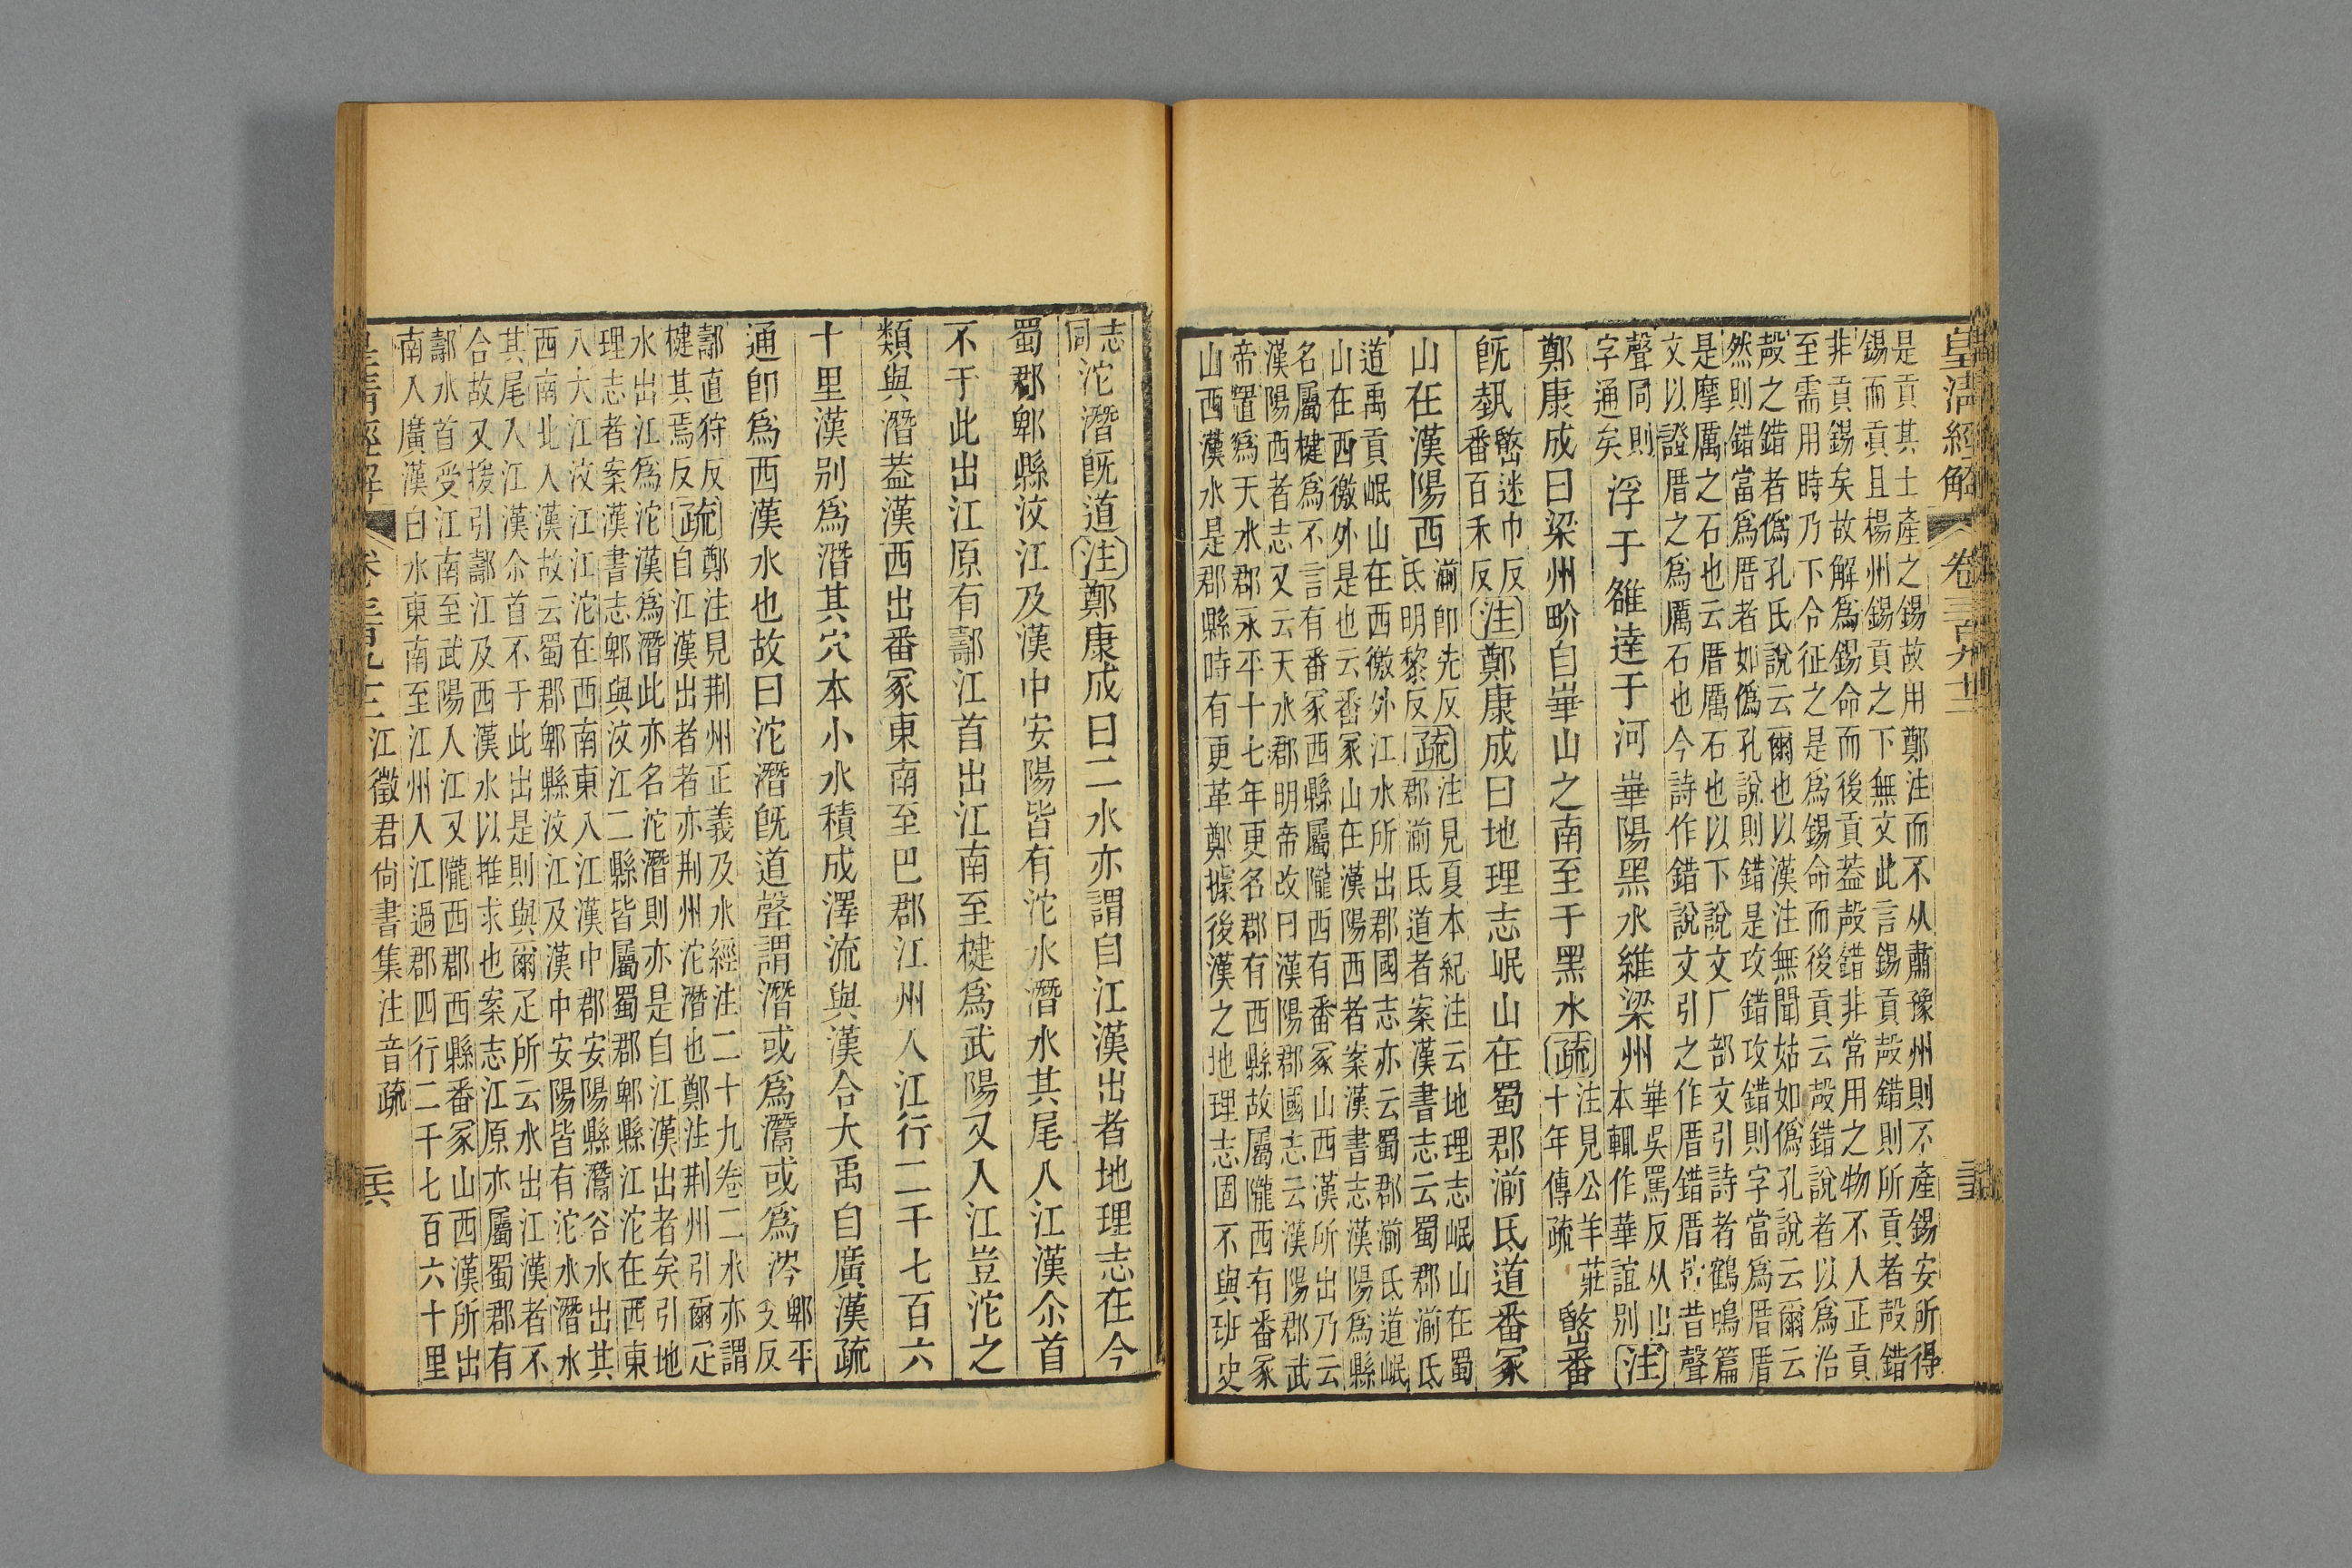 皇清經解
卷三百九十三
是貢其土產之錫故用鄭注而不从肅豫州則不產錫安所得
錫而貢且楊州錫貢之下無文此言錫貢㱿錯則所貢者㱿錯
非貢錫矣故解爲錫命而後貢葢㱿錯非常用之物不入正貢
至需用時乃下令征之是爲錫命而後貢云㱿錯說者以爲治
㱿之錯者僞孔氏說云爾也以漢注無聞姑如僞孔說云爾云
然則錯當爲厝者如僞孔說則錯是攻錯攻錯則字當爲厝厝
是摩厲之石也云厝厲石也以下說文厂部文引詩者鶴鳴篇
文以證厝之爲厲石也今詩作錯說文引之作厝錯厝皆昔聲
聲同則
字通矣
浮于雒逹于河
華陽黑水維梁州
華吳罵反从山
本輒作華誼別
注
鄭康成曰梁州畍自崋山之南至于黑水
疏
注見公羊莊
十年傳疏
㟭番
旣埶
㟭迷巾反
番百禾反
注
鄭康成曰地理志岷山在蜀郡湔氐道番冢
山在漢陽西
湔卽先反
氐明黎反
疏
注見夏本紀注云地理志岷山在蜀
郡湔氐道者案漢書志云蜀郡湔氐
道禹貢岷山在西徼外江水所出郡國志亦云蜀郡湔氐道岷
山在西徼外是也云番冢山在漢陽西者案漢書志漢陽爲縣
名屬楗爲不言有番冢西縣屬隴西有番冢山西漢所出乃云
漢陽西者志又云天水郡明帝改曰漢陽郡國志云漢陽郡武
帝置爲天水郡永平十七年更名郡有西縣故屬隴西有番冢
山西漢水是郡縣時有更革鄭據後漢之地理志固不與班史
志
同
沱潛旣道
注
鄭康成曰二水亦謂自江漢出者地理志在今
蜀郡郫縣汶江及漢中安陽皆有沱水潛水其尾入江漢尒首
不于此出江原有鄩江首出江南至楗爲武陽又入江豈沱之
類與潛葢漢西出番冢東南至巴郡江州入江行二千七百六
十里漢别爲潛其穴本小水積成澤流與漢合大禹自廣漢疏
通卽爲西漢水也故曰沱潛旣道聲謂潛或爲灊或爲涔
郫平
攴反
鄩直狩反
楗其焉反
疏
鄭注見荆州正義及水經注二十九卷二水亦謂
自江漢出者者亦荆州沱潛也鄭注荆州引爾疋
水出江爲沱漢爲潛此亦名沱潛則亦是自江漢出者矣引地
理志者案漢書志郫與汶江二縣皆屬蜀郡郫縣江沱在西東
八大江汶江江沱在西南東入江漢中郡安陽縣灊谷水出其
西南北入漢故云蜀郡郫縣汶江及漢中安陽皆有沱水潛水
其尾入江漢尒首不于此出是則與爾疋所云水出江漢者不
合故又援引鄩江及西漢水以推求也案志江原亦屬蜀郡有
鄩水首受江南至武陽入江又隴西郡西縣番冢山西漢所出
南入廣漢白水東南至江州入江過郡四行二千七百六十里
皇清經解
卷三百九十三
江徵君尙書集注音疏